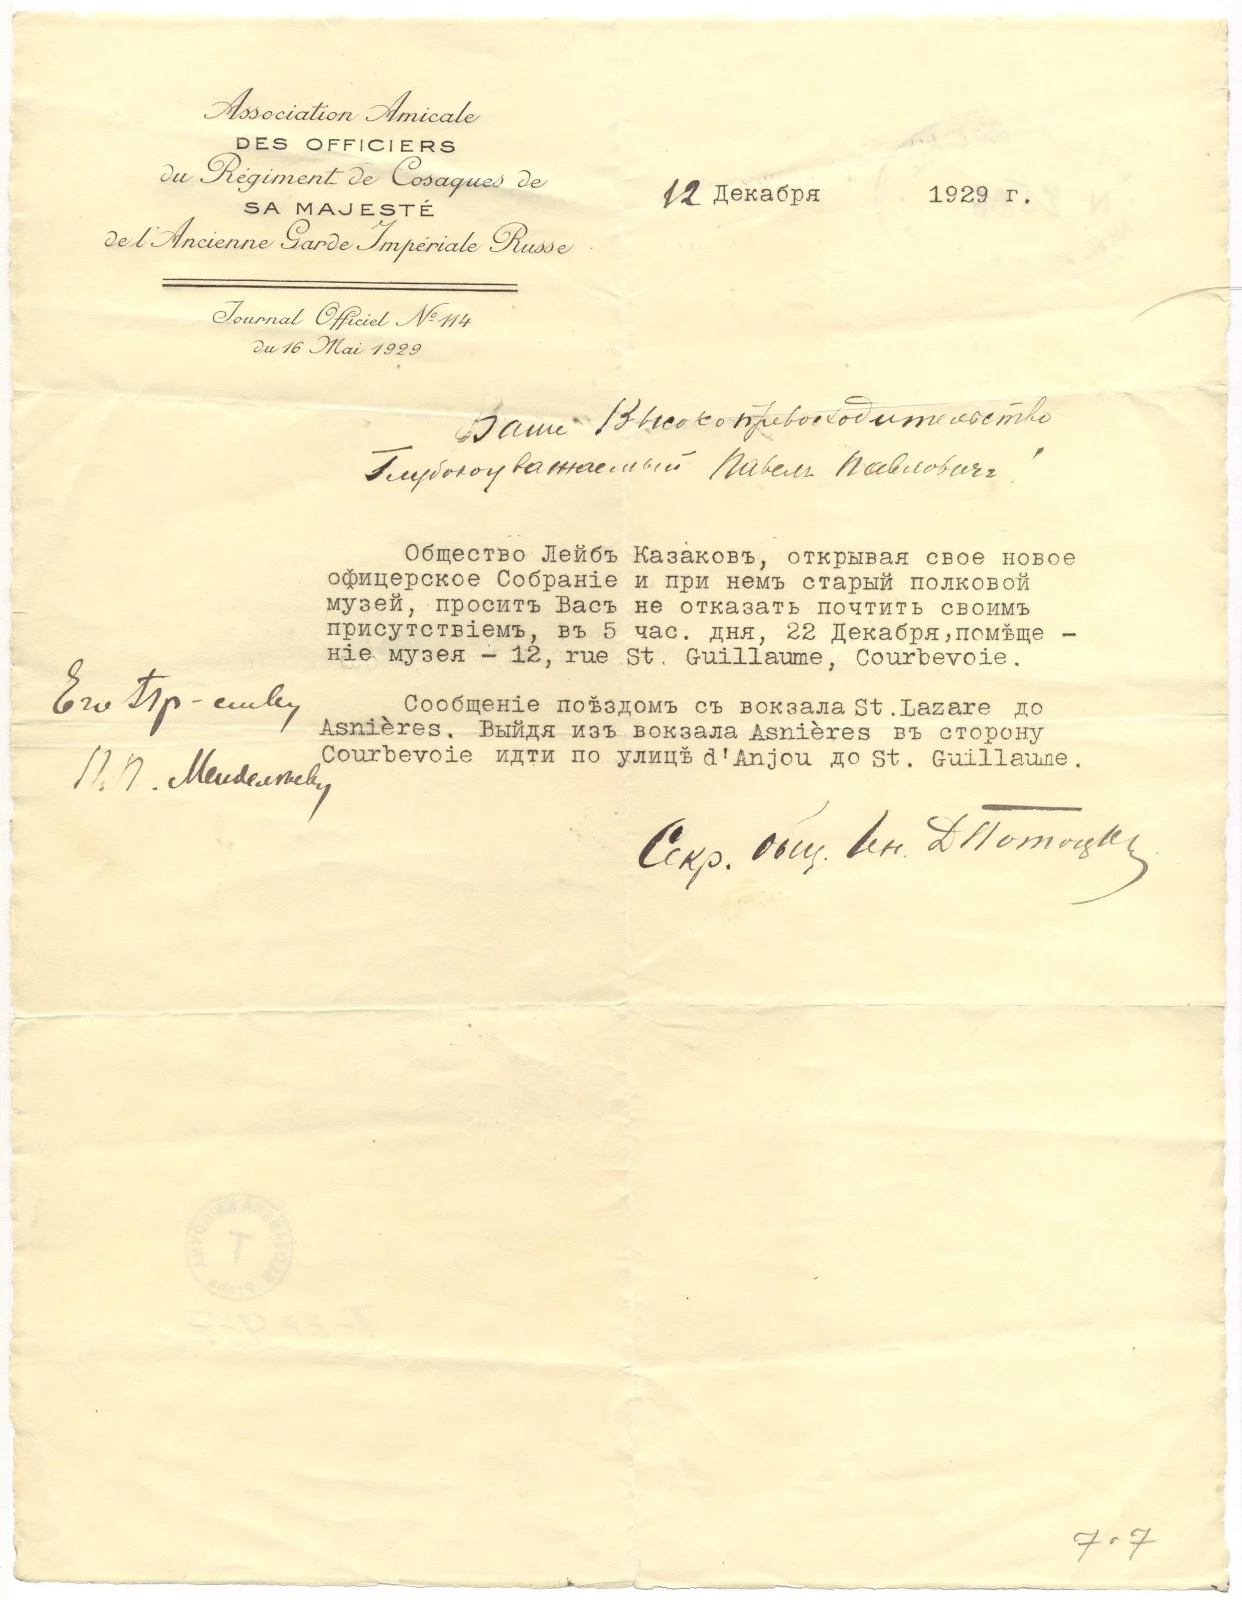 Association Amicale
DES OFFICIERS
du Régiment de Cosaques de
SA MAJESTÉ
de l'Ancienne Garde Impériale Russe
Journal Officiel № 114
du 16 Mai 1929
12 Декабря 1929 г.
Ваше Высокопревосходительство
Глубокоуважаемый Павелъ Павловичъ!
Общество Лейбъ Казаковъ, открывая свое новое
офицерское Собраніе и при немъ старый полковой
музей, проситъ Васъ не отказать почтить своимъ
присутствіемъ, въ 5 час. дня, 22 Декабря, помѣще -
ніе музея - 12, rue St. Guillaume, Courbevoie.
Сообщеніе поѣздомъ съ вокзала St.Lazare до
Asnières. Выйдя изъ вокзала Asnières въ сторону
Courbevoie идти по улицѣ d'Anjou до St. Guillaume.
Его Пр-ству
П.П. Менделѣеву
Секр. Общ. Д Потоцкій
7-7